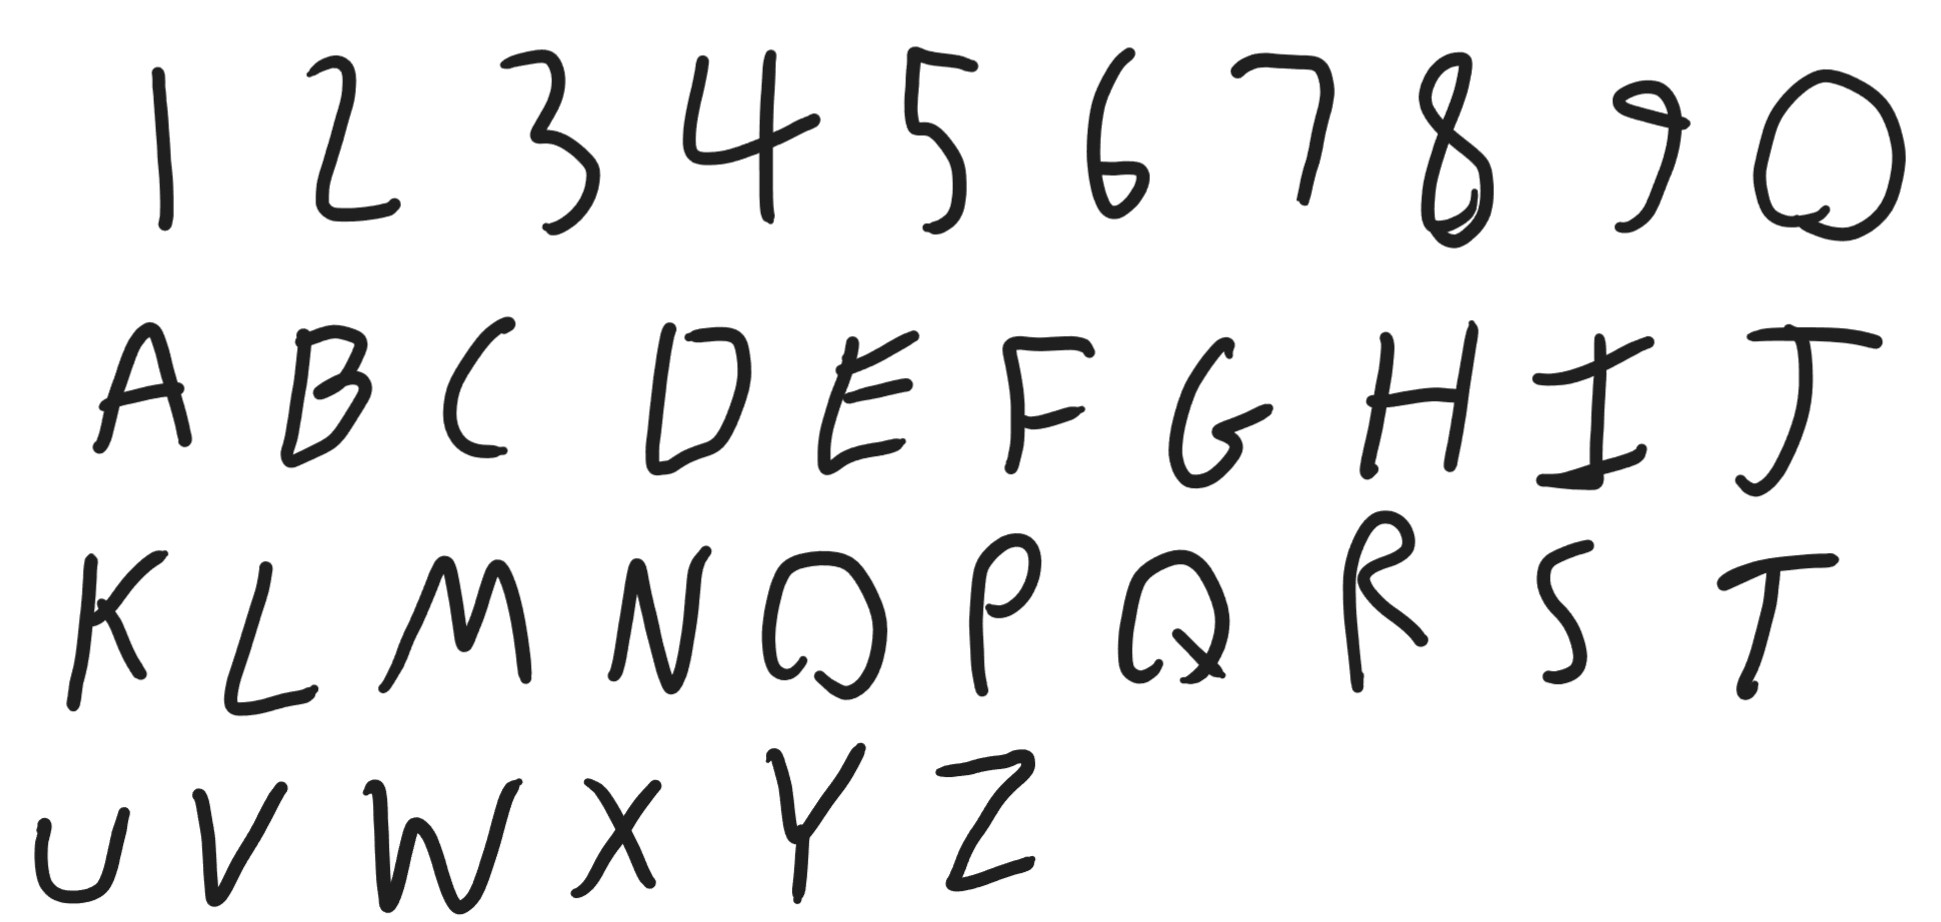 1 2 3 4 5 6 7 8 9 0
A B C D E F G H I J
K L M N O P Q R S T
U V W X Y Z